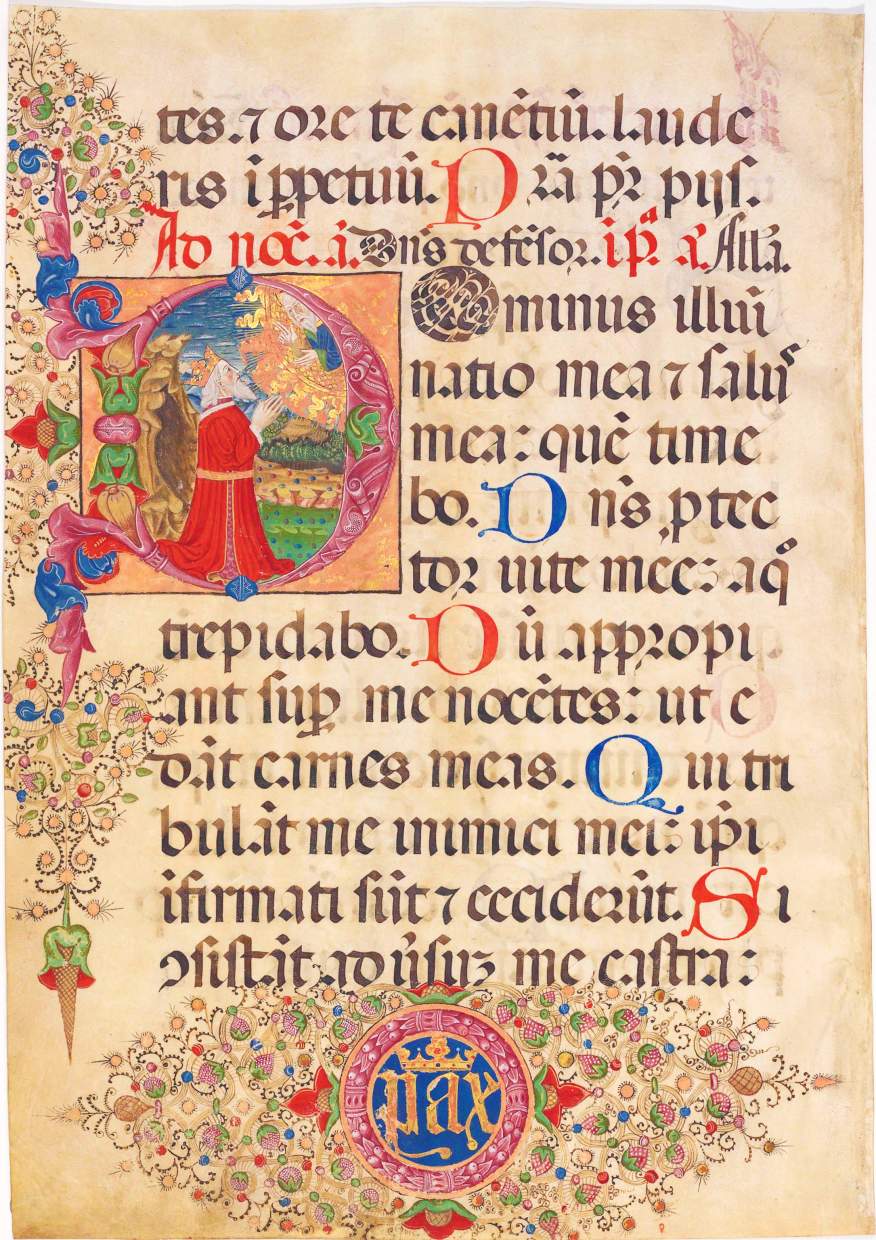 tes. ⁊ ore te canētiū. laude
ris ī ꝑpetuū. D r̄a pr̄ pijs.
Ad noc̄. a. Dn̄s defēsor. ip̄s. a. All'a.
Dominus illuī
natio mea ⁊ salus
mea: quē time
bo. D n̄s ꝓtec
tor uite mee: a qͦ
trepidabo. D ū appropi
ant suꝑ me nocētes: ut e
dāt carnes meas. Q ui tri
bulāt me inimici mei: ip̄i
īfirmati sūt ⁊ ceciderūt. S i
ↄsistāt aduersuꝫ me castra:
pax